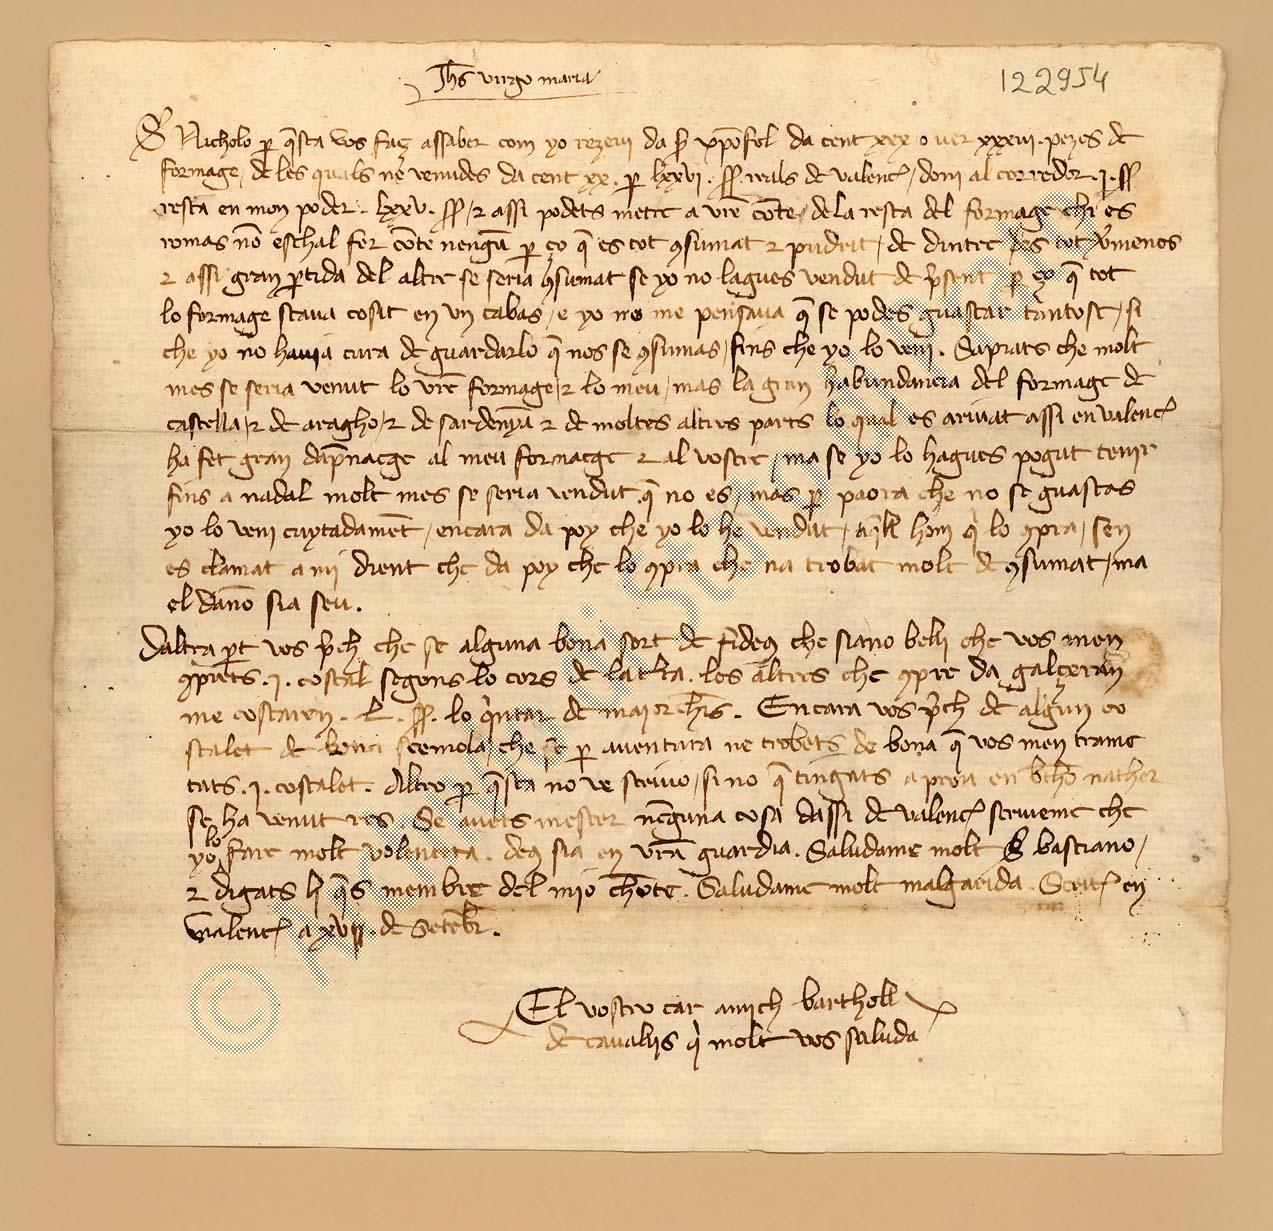 Jhs virgo maria
122954
S Nicholo p q̄sta vos faç assaber com yo rezevi da S xp̄ofol da cent xxx o ver xxxiii . pezes de
formage / de les quals ne venudes da cent xx . p lxxvi . ss̄ . reals de valenc̄ / doni al corredor . j . ss̄
resta en mon poder . lxxv . ss̄ / et assi podets metre a vr̄e cōte / de la resta del formage chi es
romas nō eschal fer cōte nengū p ço q̄ es tot ꝯsumat et pudrit / de dintre es tot v̄menos
et assi gran p̄tida del altre se seria ꝯsumat se yo no lagues vendut de p̄sent p ço q̄ tot
lo formage stava cosit en un cabas / e yo no me pensava q̄ se podes guastar tantost / si
che yo no havia cura de guardarlo q̄ nos se ꝯsumas / fins che yo lo veni . Sapiats che molt
mes se seria venut lo vr̄e formage / et lo meu / mas la gran habundancia del formage de
castella / et de aragho / et de sardenȳa et de moltes altres parts lo qual es arivat assi en valenc̄
ha fet gran dāpnacge al meu formacge et al vostre / ma se yo lo hagues pogut tenir
fins a nadal molt mes se seria vendut q̄ no es / mas p paora che no se guastas
yo lo veni cuytadamēt / encara da poy che yo lo he vendut / aq̄ll hom q̄ lo ꝯpra / sen
es clamat a mi dient che da poy che lo ꝯpra che na trobat molt de ꝯsumat / ma
el dāno sia seu .
Daltra p̄t vos p̄ch che se alguna bona sort de fideus che siano belli che vos men
ꝯprets . j . costal segons lo cors de la t̄ra . los altres che ꝯpre da galçeran
me costaren . L . ss̄ . lo q̄ntar de maiorchīs . Encara vos p̄ch de algun co
stalet de bona semola / che se p aventura ne trobets de bona q̄ vos men trame
tats . j . costalet . Altro p q̄sta no ve scrivo / si no q̄ tingats a prova en bth̄o nather
se ha venut res . Se avets mester nēguna cosa dassi de valenc̄ scriveme che
yo lo fare molt volentera . deus sia en vr̄a guardia . Saludame molt S bastiano /
et digats li q̄s membre del mio chōte . Saludame molt malgarida . Scrit̄ en
valenc̄ a xvii . de Setēbr̄ .
El vostro car amich barthol̄l
de cavallis q̄ molt vos saluda